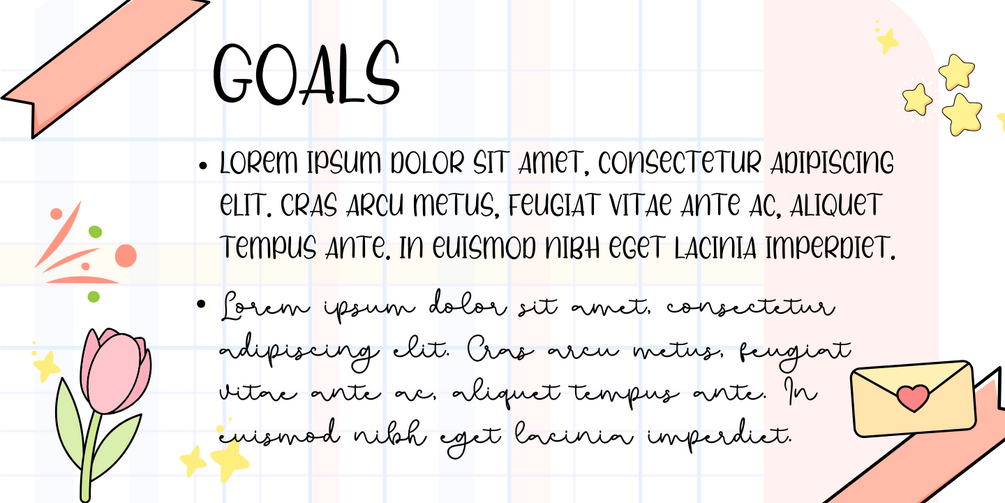 GOALS
• LOREM IPSUM DOLOR SIT AMET, CONSECTETUR ADIPISCING
ELIT. CRAS ARCU METUS, FEUGIAT VITAE ANTE AC, ALIQUET
TEMPUS ANTE. IN EUISMOD NIBH EGET LACINIA IMPERDIET.
• Lorem ipsum dolor sit amet, consectetur
adipiscing elit. Cras arcu metus, feugiat
vitae ante ac, aliquet tempus ante. In
euismod nibh eget lacinia imperdiet.